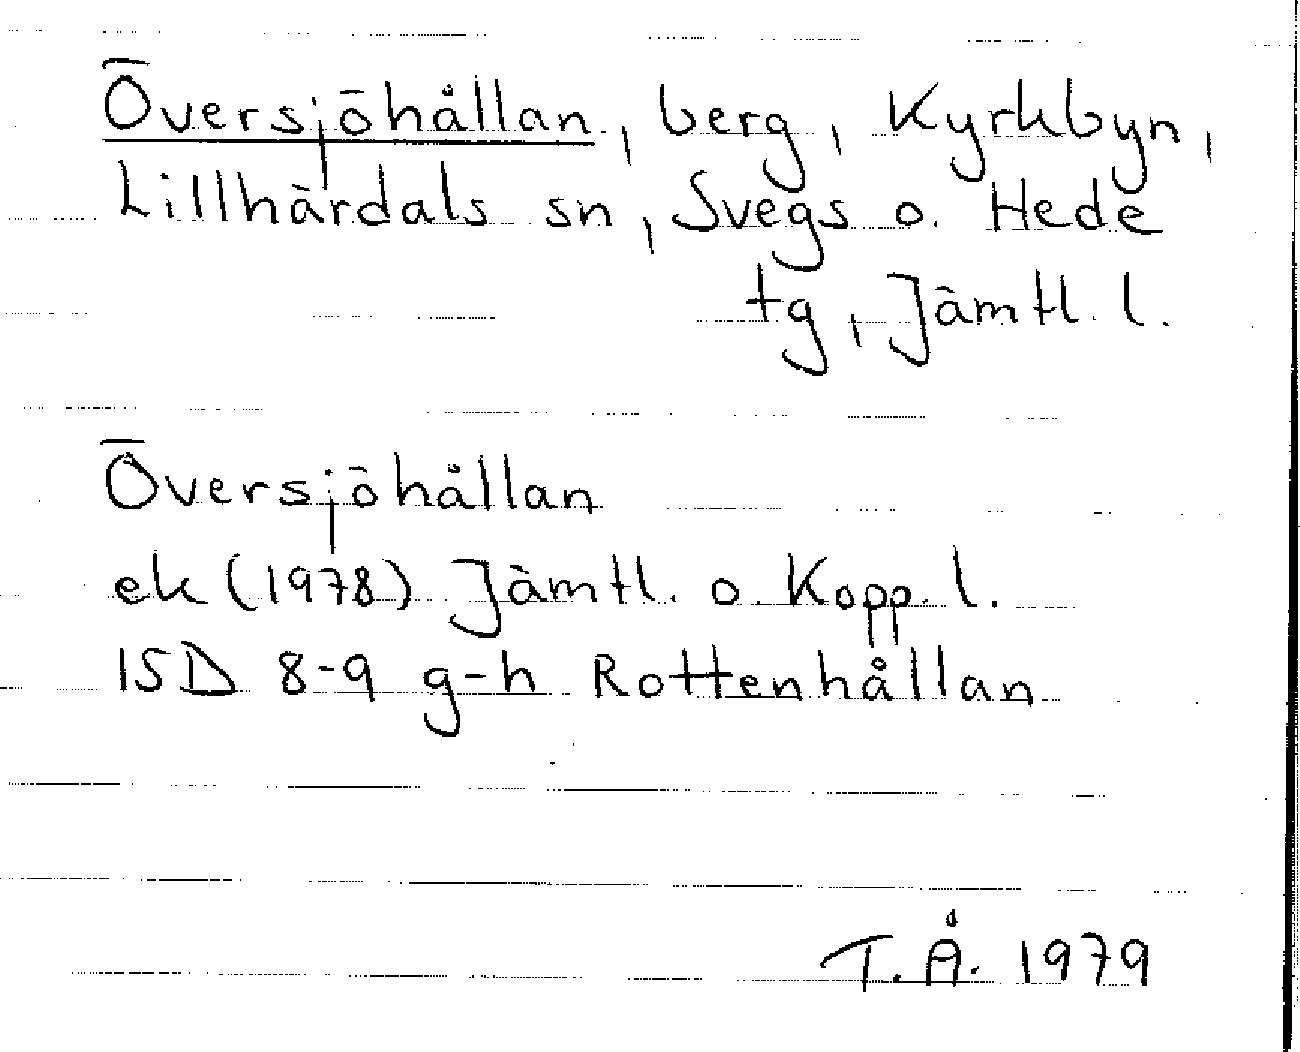 Översjöhållan, berg, Kyrkbyn,
Lillhärdals sn, Svegs o. Hede
tg, Jämtl. l.
Översjöhållan
ek (1978) Jämtl. o Kopp. l.
15D 8-9 g-h Rottenhållan
T.Å. 1979